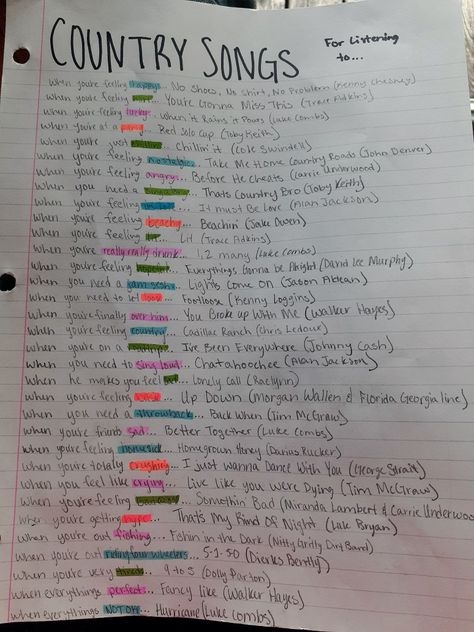 COUNTRY SONGS
For Listening to...
When you're feeling happy... No Shoes, No Shirt, No Problem (Kenny Chesney)
When you're feeling ... You're Gonna Miss This (Trace Adkins)
When you're feeling lucky... When it Rains it Pours (Luke Combs)
When you're at a party... Red Solo Cup (Toby Keith)
When you're just chillin... Chillin' it (Cole Swindell)
When you're feeling nostalgic... Take Me Home Country Roads (John Denver)
When you're feeling angry... Before He Cheats (Carrie Underwood)
When you need a ... Thats Country Bro (Toby Keith)
When you're feeling in love... It Must Be Love (Alan Jackson)
When you're feeling beachy... Beachin' (Jake Owen)
When you're feeling lit... Lit (Trace Adkins)
When you're really really drunk... 1, 2 many (Luke Combs)
When you're feeling hopeful... Everythings Gonna be Alright (David Lee Murphy)
When you need a jam sesh... Lights Come On (Jason Aldean)
When you need to let loose... Footloose (Kenny Loggins)
When you're finally over him... You Broke up With Me (Walker Hayes)
When you're feeling country... Cadillac Ranch (Chris Ledoux)
When you're on a roadtrip... I've Been Everywhere (Johnny Cash)
When you need to sing loud... Chatahoochee (Alan Jackson)
When he makes you feel ... Lonely Call (Raelynn)
When you're feeling ... Up Down (Morgan Wallen & Florida Georgia line)
When you need a throwback... Back When (Tim McGraw)
When you're friends sad... Better Together (Luke Combs)
When you're feeling homesick... Homegrown Honey (Darius Rucker)
When you're totally crushing... I Just wanna Dance With You (George Strait)
When you feel like crying... Live Like you were Dying (Tim McGraw)
When you're feeling ... Somethin Bad (Miranda Lambert & Carrie Underwood
When you're getting hype... That's My Kind Of Night (Luke Bryan)
When you're out fishing... Fishin in the Dark (Nitty Gritty Dirt Band)
When you're out riding four wheelers... 5-1-50 (Dierks Bently)
When you're very tired... 9 to 5 (Dolly Parton)
When everythings perfect... Fancy Like (Walker Hayes)
When everythings NOT OK... Hurricane (Luke Combs)